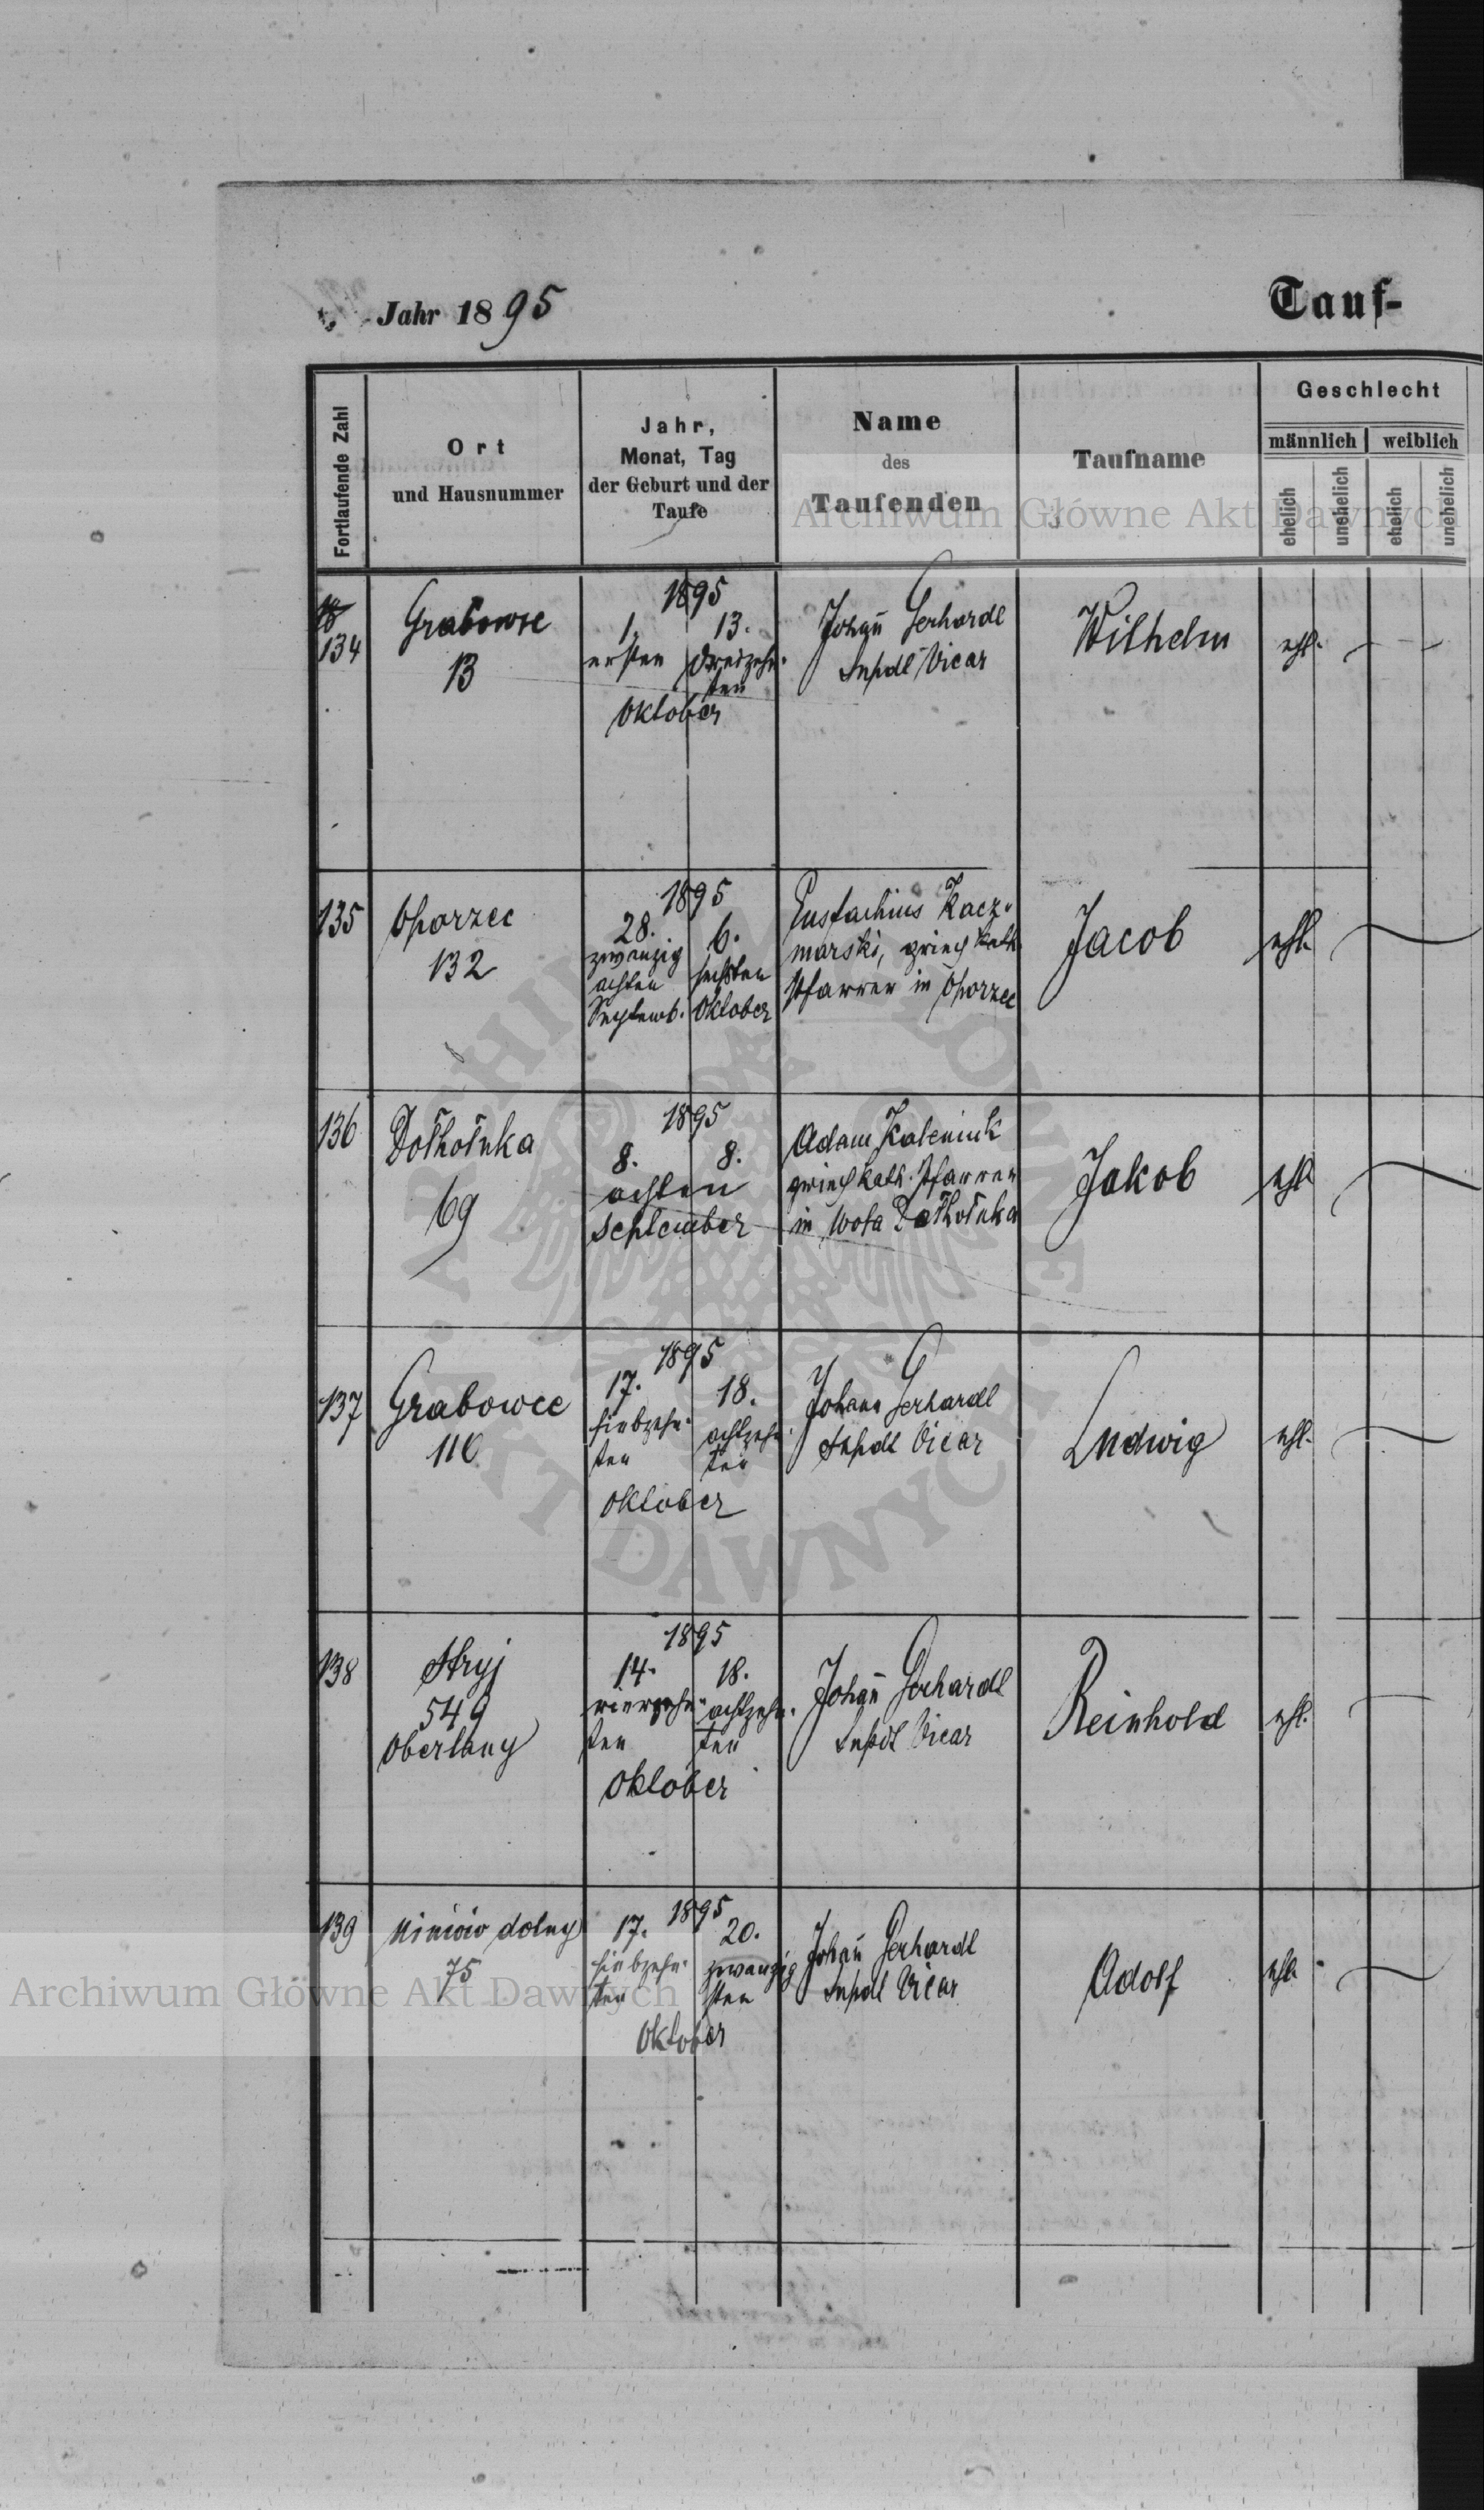 Jahr 1895
Tauf-
Fortlaufende Zahl
Ort
und Hausnummer
Jahr,
Monat, Tag
der Geburt und der
Taufe
Name
des
Taufenden
Taufname
Geschlecht
männlich
weiblich
ehelich
unehelich
ehelich
unehelich
Archiwum Główne Akt Dawnych
134
Grabowce
13
1895
1. 13.
ersten dreizehn-
ten
Oktober
Johañ Gerhardt
Supdl Vicar
Wilhelm
ehl.
135
Oporzec
132
1895
28. 6.
zwanzig
achten sechsten
Septemb. Oktober
Eustachius Kacz-
marski, griech kath
Pfarrer in Oporzec
Jacob
ehl.
136
Dołhołuka
69
1895
8. 8.
achten
September
Adam Kaleniuk
griech kath. Pfarrer
in Wola Dołhołuka
Jakob
ehl
137
Grabowce
116
1895
17. 18.
siebzehn- achtzehn-
ten ten
Oktober
Johann Gerhardt
Supdl Vicar
Ludwig
ehl.
138
Stryj
549
Oberlany
1895
14. 18.
vierzehn- achtzehn-
ten ten
Oktober
Johañ Gerhardt
Supdl Vicar
Reinhold
ehl.
139
dolny
75
1895
17. 20.
siebzehn- zwanzig
ten sten
Oktober
Johañ Gerhardt
Supdl Vicar
Adolf
ehl.
Archiwum Główne Akt Dawnych
ARCHIWUM GŁÓWNE · AKT DAWNYCH ·